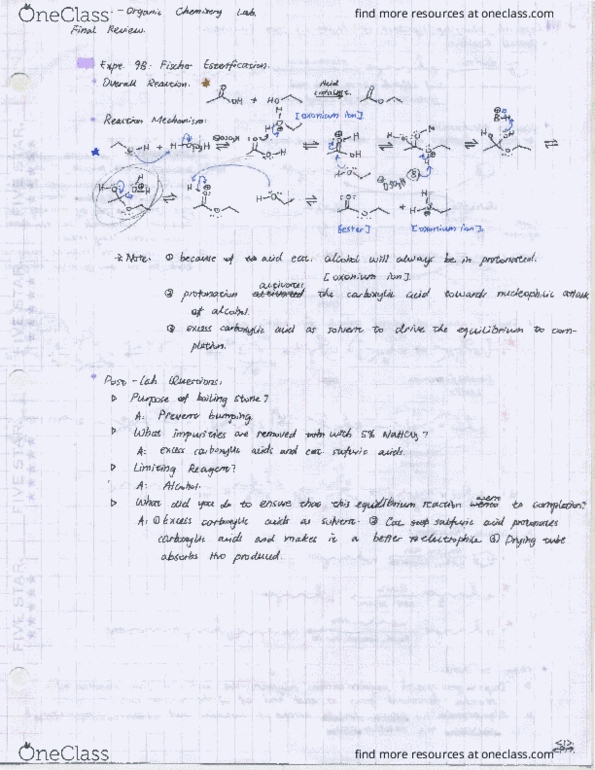 OneClass
find more resources at oneclass.com
- Organic Chemistry Lab.
Final Review.
Expt. 9B: Fischer Esterification.
Overall Reaction.
OH + HO
Acid
catalyst
Reaction Mechanism:
[oxonium ion]
[ester]
[oxonium ion].
Note. ① because of acid cat. alcohol will always be in protonated.
[oxonium ion]
activates
② protonation the carboxylic acid towards nucleophilic attack
of alcohol.
③ excess carboxylic acid as solvent to drive the equilibrium to com-
pletion.
Post-Lab Questions:
Purpose of boiling stone?
A: Prevent bumping
What impurities are removed with 5% NaHCO3?
A: excess carboxylic acids and cat. sulfuric acids.
Limiting Reagent?
A: Alcohol.
went
What did you do to ensure that this equilibrium reaction to completion?
A: ① Excess carboxylic acids as solvent. ② Cat. sulfuric acid protonates
carboxylic acids and makes it a better electrophile ③ Drying tube
absorbs H2O produced.
FIVE STAR
FIVE STAR
FIVE STAR
OneClass
find more resources at oneclass.com